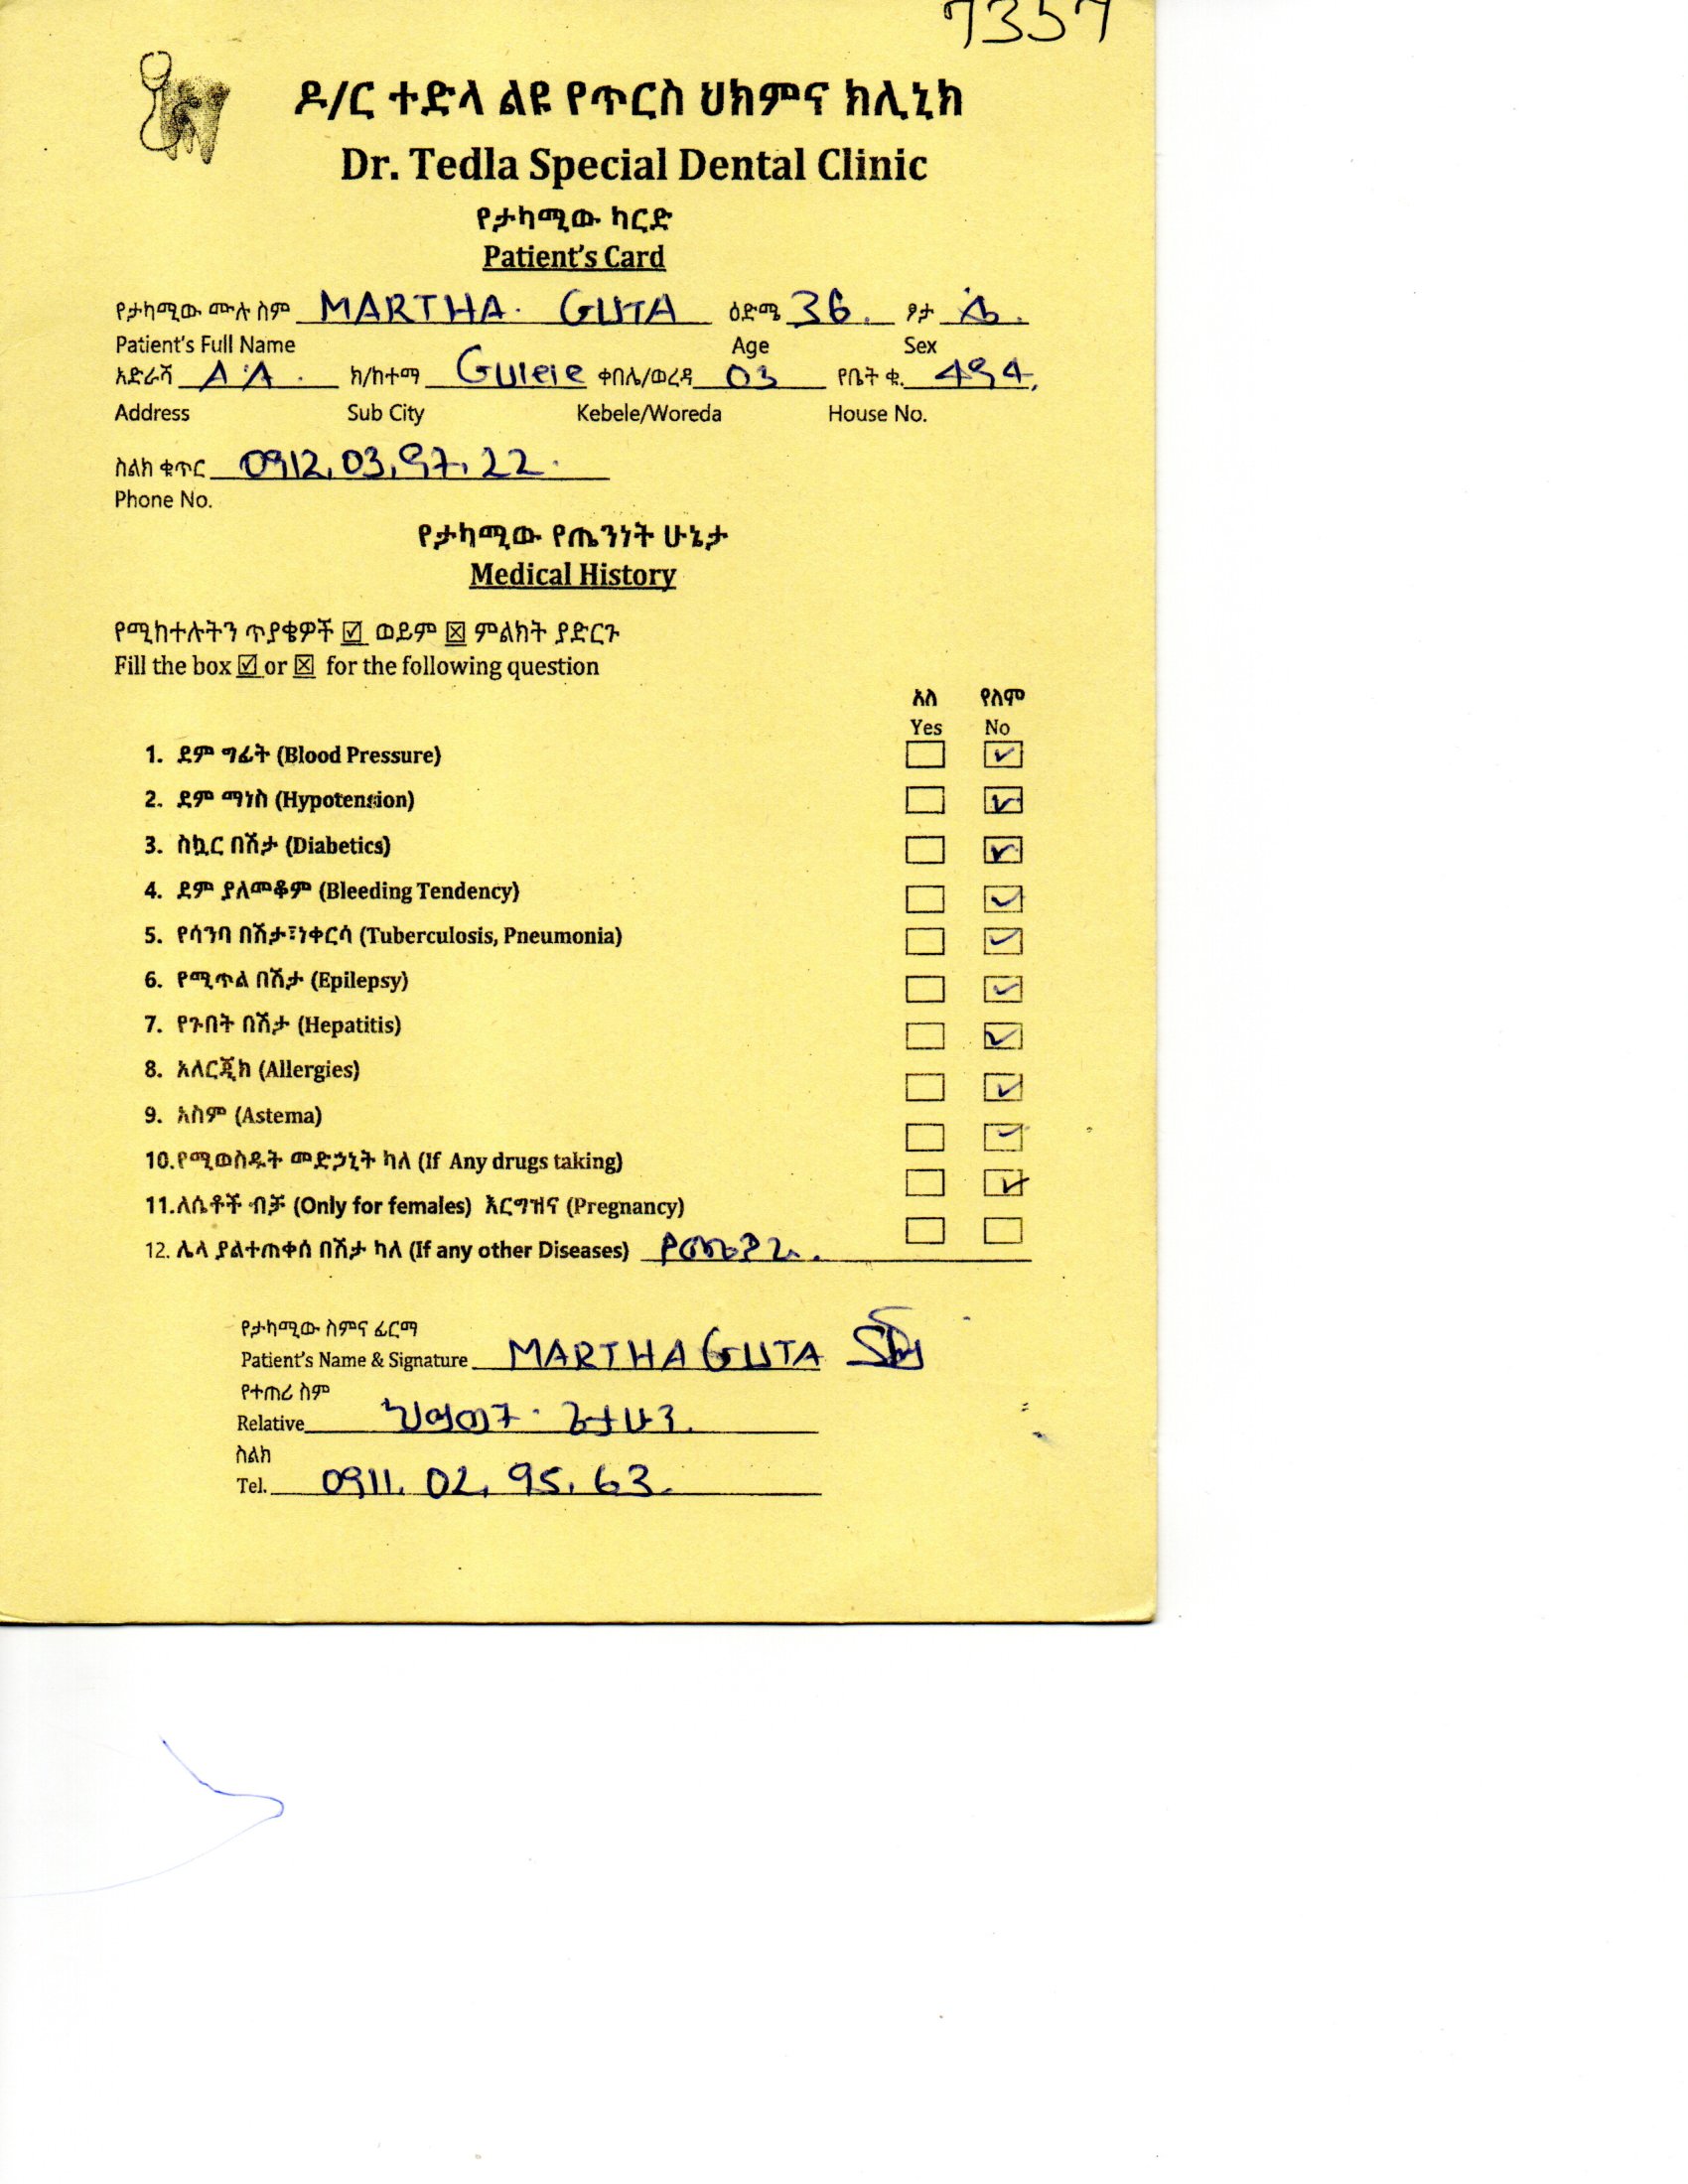 7357
ዶ/ር ተድላ ልዩ የጥርስ ህክምና ክሊኒክ
Dr. Tedla Special Dental Clinic
የታካሚው ካርድ
Patient's Card
የታካሚው ሙሉ ስም MARTHA GUTA ዕድሜ 36 ፆታ ሴ
Patient's Full Name Age Sex
አድራሻ A.A ክ/ከተማ Gulele ቀበሌ/ወረዳ 03 የቤት ቁ. 494
Address Sub City Kebele/Woreda House No.
ስልክ ቁጥር 0912.03.97.22
Phone No.
የታካሚው የጤንነት ሁኔታ
Medical History
የሚከተሉትን ጥያቄዎች ☑ ወይም ☒ ምልክት ያድርጉ
Fill the box ☑ or ☒ for the following question
አለ የለም
Yes No
1. ደም ግፊት (Blood Pressure) ☐ ☑
2. ደም ማነስ (Hypotension) ☐ ☑
3. ስኳር በሽታ (Diabetics) ☐ ☑
4. ደም ያለመቆም (Bleeding Tendency) ☐ ☑
5. የሳንባ በሽታ፣ነቀርሳ (Tuberculosis, Pneumonia) ☐ ☑
6. የሚጥል በሽታ (Epilepsy) ☐ ☑
7. የጉበት በሽታ (Hepatitis) ☐ ☑
8. አለርጂክ (Allergies) ☐ ☑
9. አስም (Astema) ☐ ☑
10.የሚወስዱት መድኃኒት ካለ (If Any drugs taking) ☐ ☑
11.ለሴቶች ብቻ (Only for females) እርግዝና (Pregnancy) ☐ ☐
12. ሌላ ያልተጠቀሰ በሽታ ካለ (If any other Diseases)
የታካሚው ስምና ፊርማ
Patient's Name & Signature MARTHA GUTA
የተጠሪ ስም
Relative
ስልክ
Tel. 0911. 02. 95. 63.